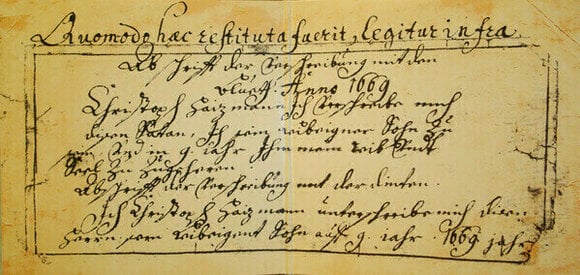 Quomodo hæc restituta fuerit, legitur infra.
Abschrifft der Verschreibung mit dem
Bluett. Anno 1669
Christoph Haizmann Ich Verschreibe mich
disen Satan, Ich sein leibeigner Sohn zu
sein und in 9. iahr Ihm mein leib undt
Seel zu zugheren
Abschrifft der Verschreibung mit der dinten.
Ich Christoph Haizmann unterschreibe mich disen
Herrn, sein leibeigent Sohn auff 9. iahr. 1669 jahr